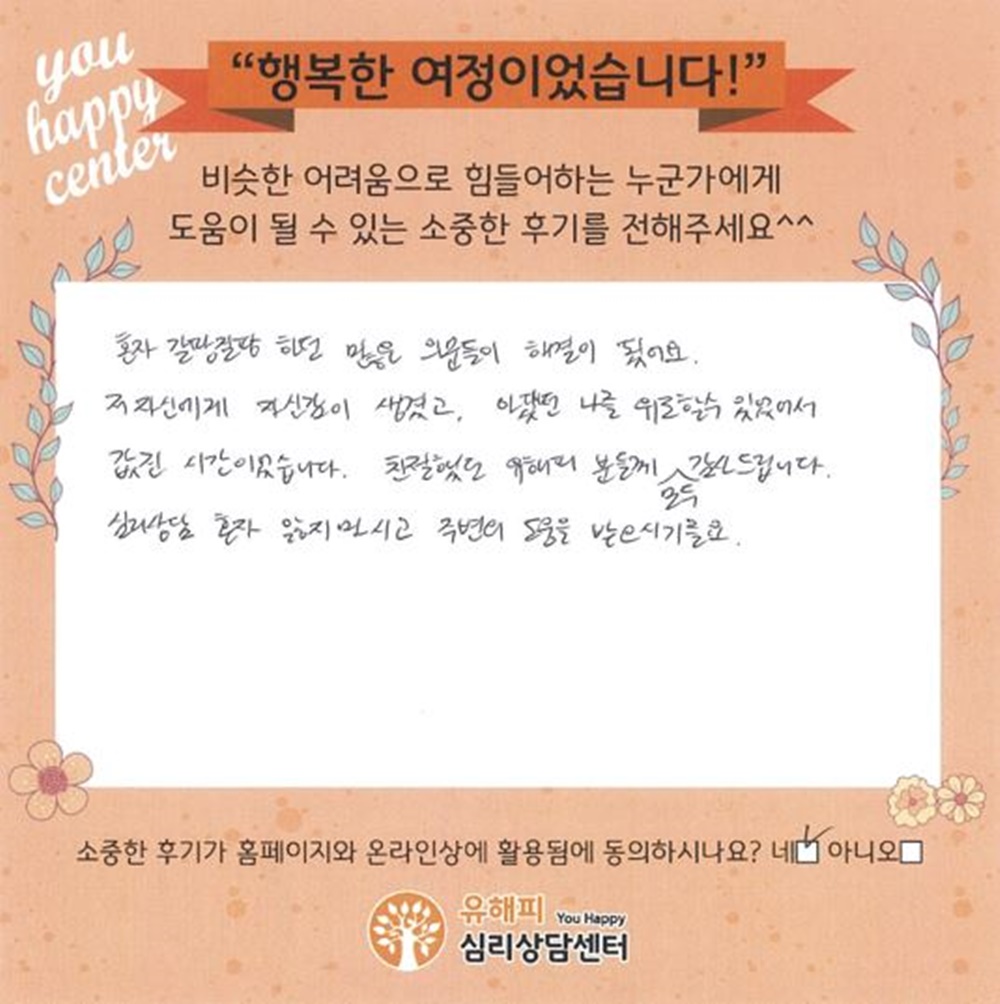 you
happy
center
“행복한 여정이었습니다!”
비슷한 어려움으로 힘들어하는 누군가에게
도움이 될 수 있는 소중한 후기를 전해주세요^^
혼자 갈팡질팡 하던 많은 의문들이 해결이 됐어요.
저 자신에게 자신감이 생겼고, 아팠던 나를 위로할수 있었어서
값진 시간이었습니다. 친절했던 유해피 분들께 모두 감사드립니다.
심리상담 혼자 앓지마시고 주변의 도움을 받으시기를요.
소중한 후기가 홈페이지와 온라인상에 활용됨에 동의하시나요? 네 아니오
유해피 You Happy
심리상담센터